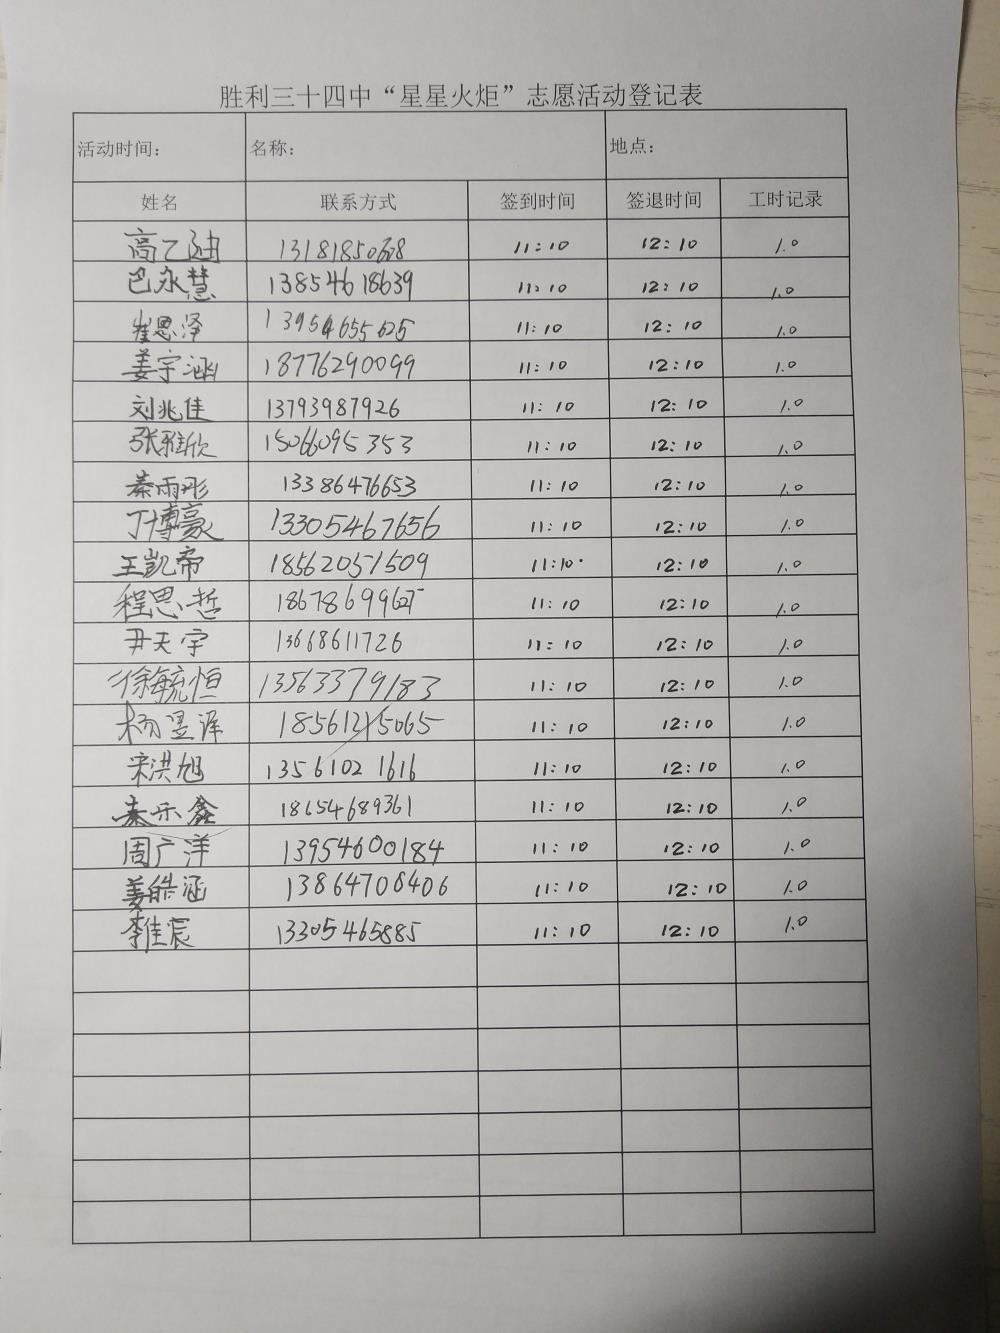 胜利三十四中“星星火炬”志愿活动登记表
活动时间： 名称： 地点：
姓名 联系方式 签到时间 签退时间 工时记录
高乙迪 13181850608 11:10 12:10 1.0
巴永慧 13854618639 11:10 12:10 1.0
崔思泽 13954655625 11:10 12:10 1.0
姜宇涵 18776290099 11:10 12:10 1.0
刘兆佳 13793987926 11:10 12:10 1.0
张雅欣 15066095353 11:10 12:10 1.0
秦雨彤 13386476653 11:10 12:10 1.0
丁博豪 13305467656 11:10 12:10 1.0
王凯帝 18562051509 11:10 12:10 1.0
程思哲 11:10 12:10 1.0
尹天宇 13668611726 11:10 12:10 1.0
徐毓恒 13563379183 11:10 12:10 1.0
杨昱泽 18561215065 11:10 12:10 1.0
宋洪旭 13561021616 11:10 12:10 1.0
秦乐鑫 18654689361 11:10 12:10 1.0
周广洋 13954600184 11:10 12:10 1.0
姜皓涵 13864708406 11:10 12:10 1.0
李佳宸 13305465885 11:10 12:10 1.0